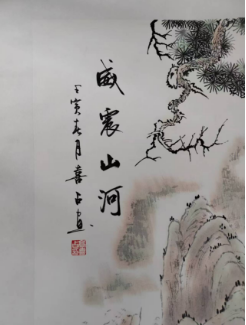 威震山河
壬寅春月喜占画